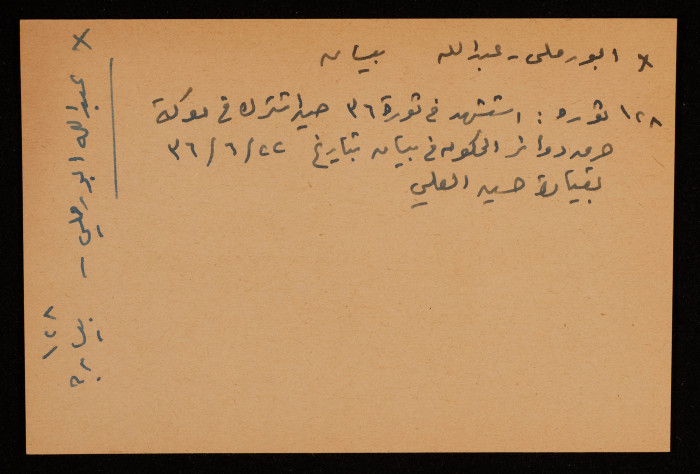 x ابو رملى - عبدالله بيسان
١٢٨ ثوره : استشهد في ثورة ٣٦ حين اشترك في معركة
حرق دوائر الحكومه في بيسان بتاريخ ٢٢/٦/٣٦
بقيادة حسين العلي
x عبدالله ابو رملي - بيسان
١٢٨